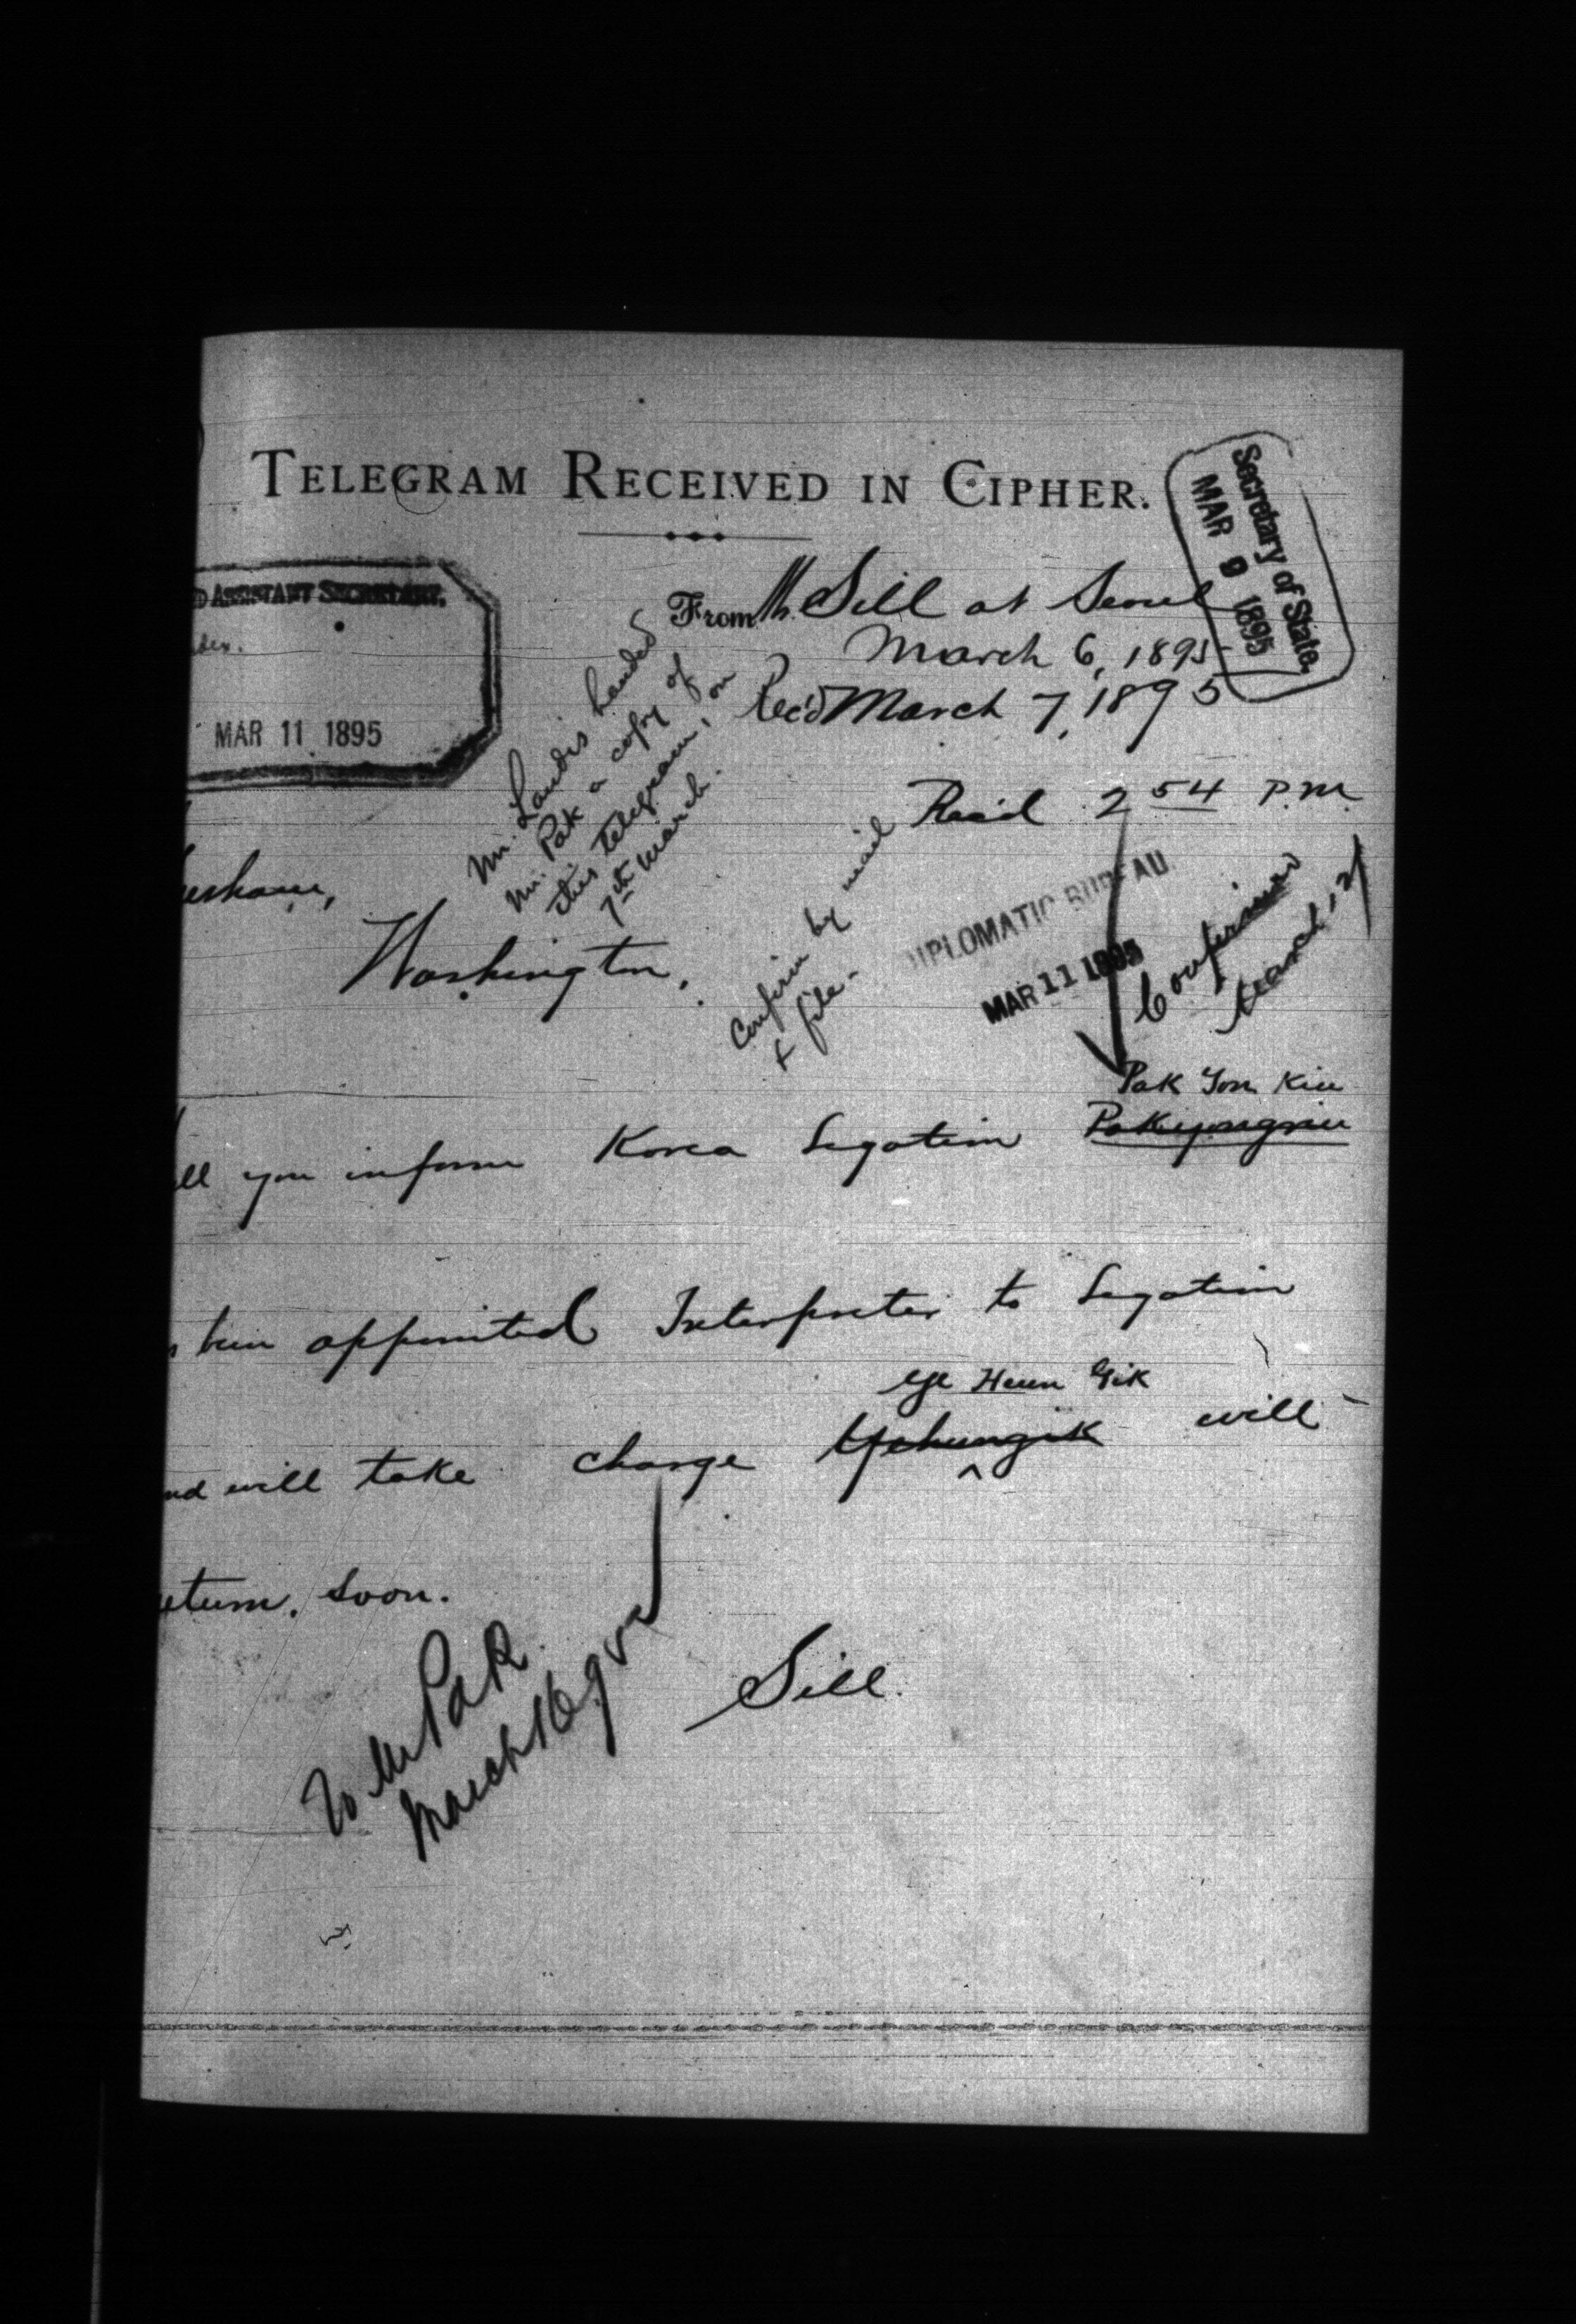 TELEGRAM RECEIVED IN CIPHER.
Secretary of State.
MAR 9 1895
D ASSISTANT SECRETARY.
MAR 11 1895
From Mr. Sill at Seoul
March 6, 1895
Rec'd March 7, 1895
Mr. Landis handed
Mr. Pak a copy of
this telegram, on
7th March.
Rec'd 2 54 P.M.
esham,
Washington.
Confirm by mail
& file.
DIPLOMATIC BUREAU
MAR 11 1895
Confirmed
March 12
Pak Yon Kiu
ll you inform Korea Legation Pakyongniu
been appointed Interpreter to Legation
Ye Heun Gik
nd will take charge Yehungik will
eturn. Soon.
Sill.
To Mr Pak
March 16 95